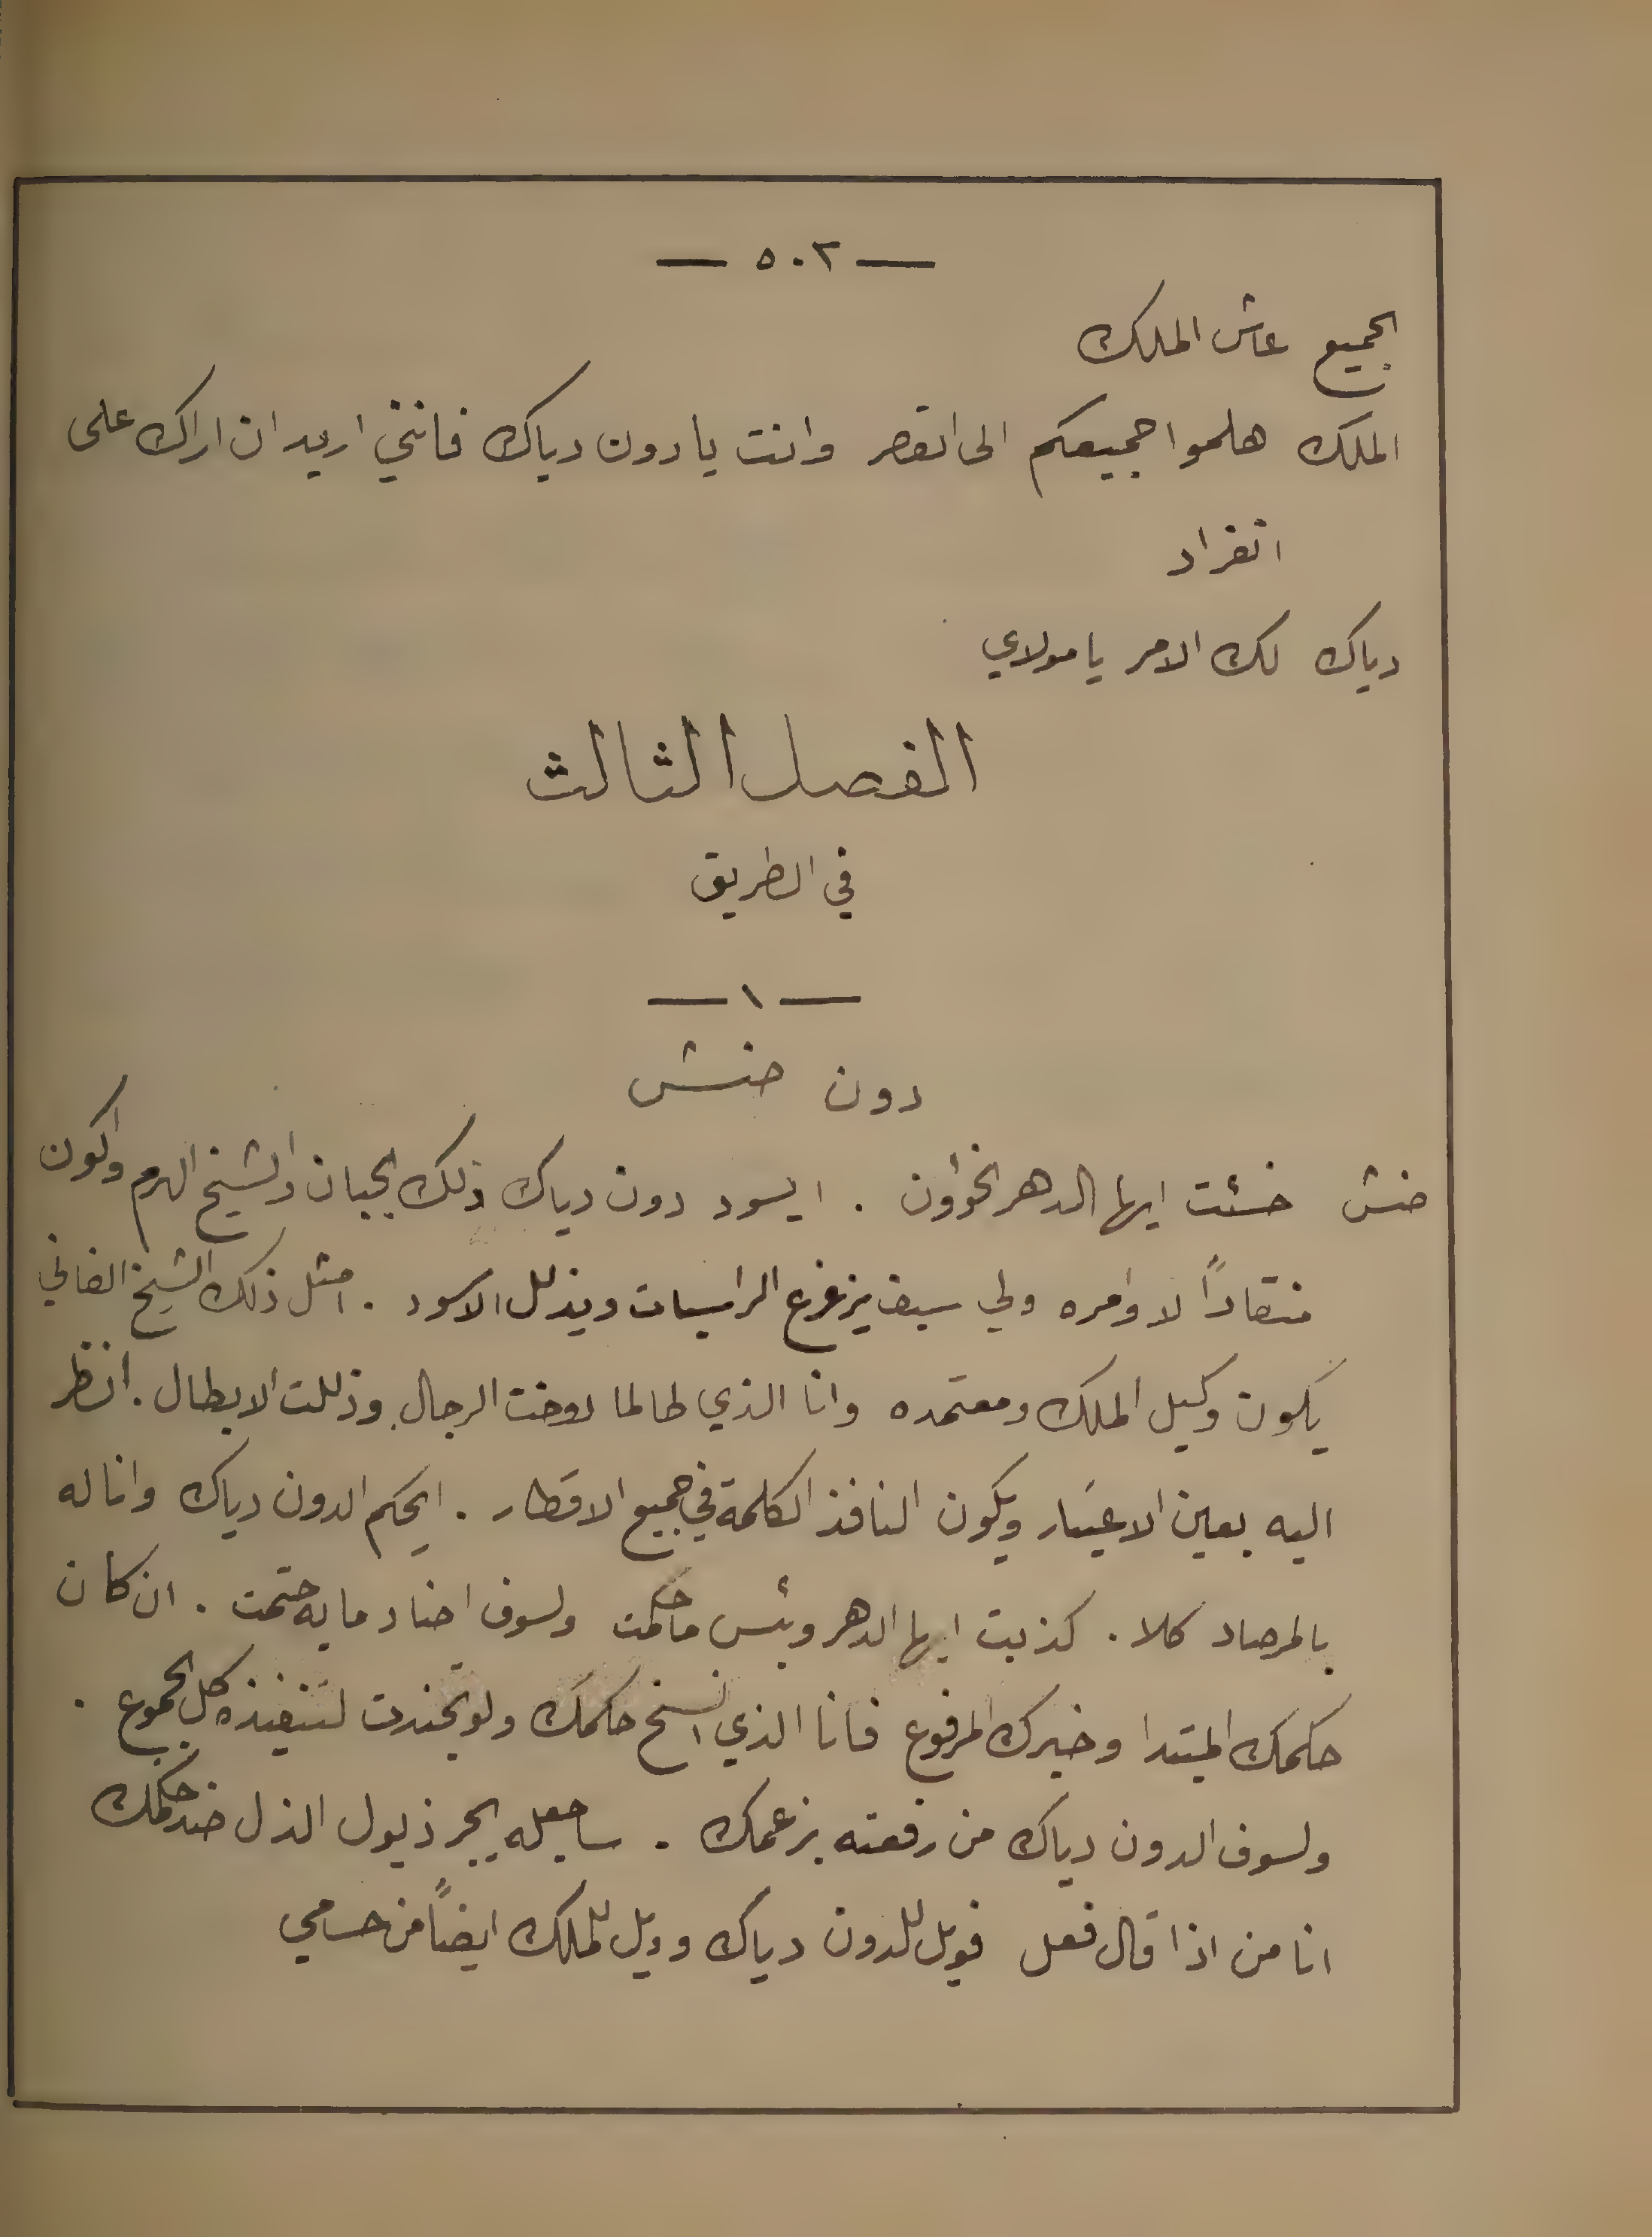 — ٥٠٢ —
الجميع عاش الملك
الملك هلموا جميعكم الى القصر وانت يا دون دياك فانني اريد ان اراك على
انفراد
دياك لك الامر يا مولاي
الفصل الثالث
في الطريق
— ١ —
دون حنش
حنش خسئت ايها الدهر الخؤون . ايسود دون دياك ذلك الجبان والشيخ الهرم واكون
منقاداً لاوامره ولي سيف يزعزع الراسيات ويذلل الاسود . امثل ذلك الشيخ الفاني
يكون وكيل الملك ومعتمده وانا الذي طالما دوخت الرجال وذللت الابطال . انظر
اليه بعين الاعتبار ويكون النافذ الكلمة في جميع الاقطار . ايحكم الدون دياك وانا له
بالمرصاد كلا . كذبت ايها الدهر وبئس ما حكمت ولسوف اضاد ما به حتمت . ان كان
حكمك المبتدا وخبرك المرفوع فانا الذي انسخ حكمك ولو تجندت لتنفيذه كل الجموع .
ولسوف الدون دياك من رفعته بزعمك . ساجعله يجر ذيول الذل ضد حكمك
انا من اذا قال فعل فويل للدون دياك وويل للملك ايضاً من حسامي